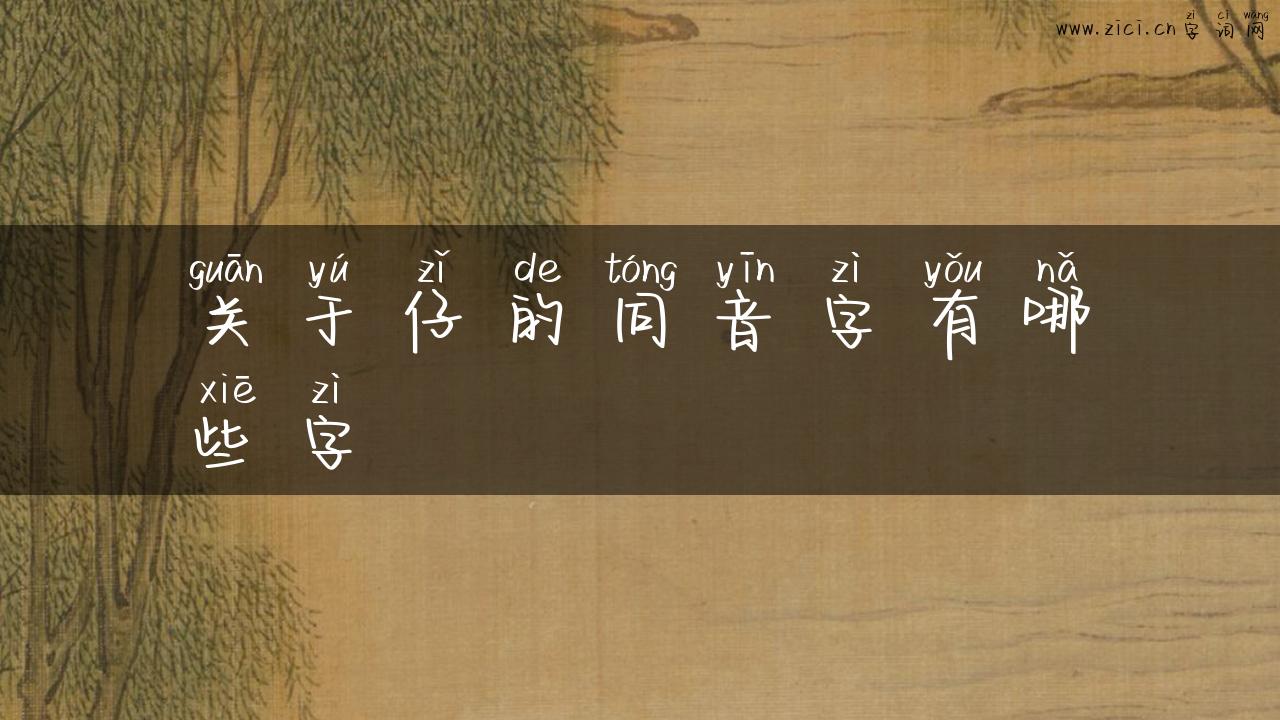 zì cí wǎng
www.zici.cn 字词网
guān yú zǐ de tóng yīn zì yǒu nǎ
关于仔的同音字有哪
xiē zì
些字